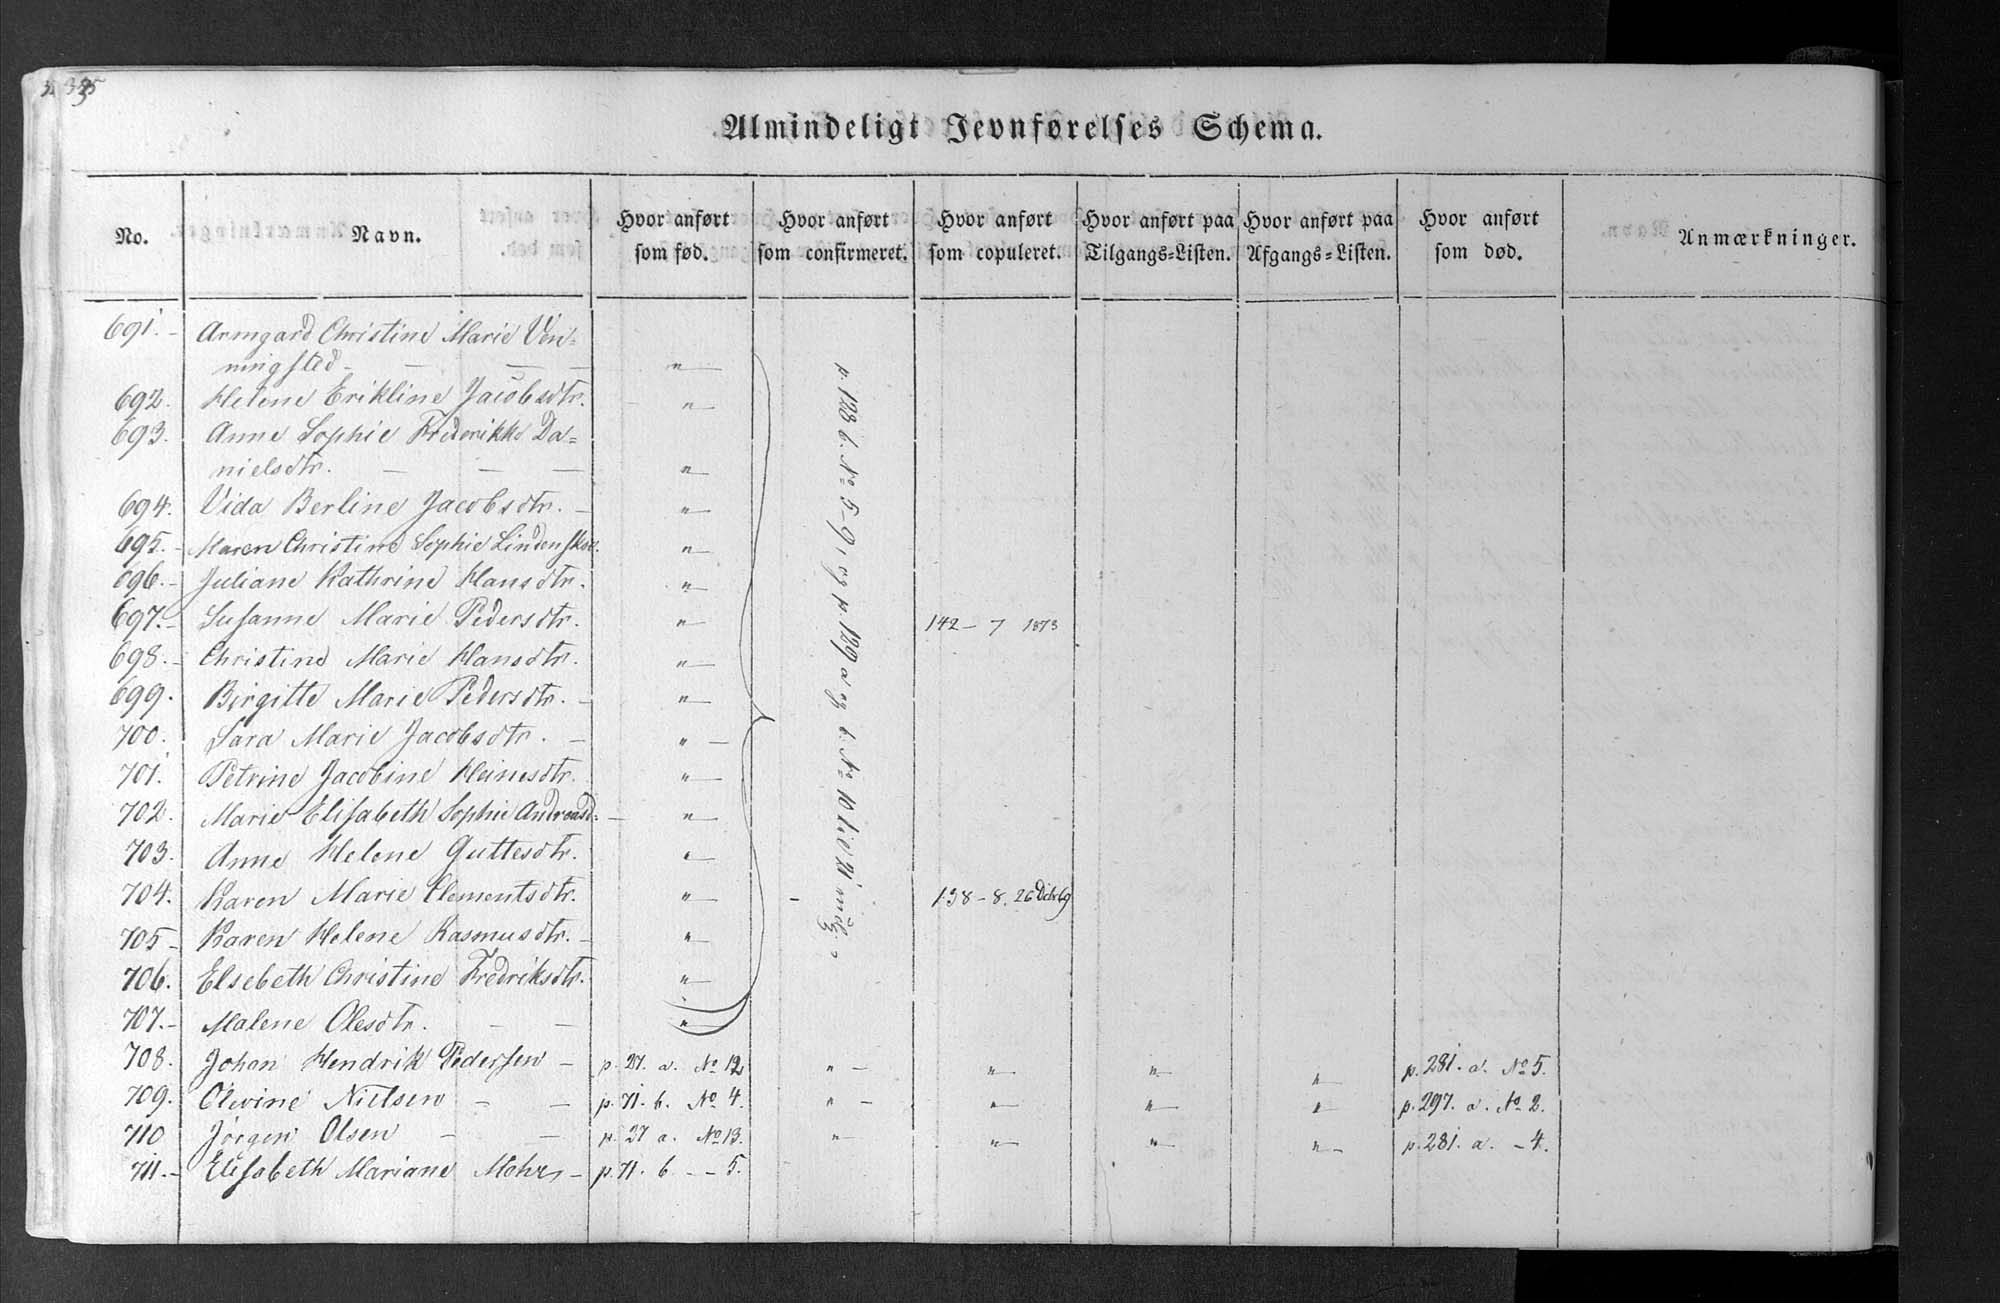 Almindeligt Jevnførelses Schema.
No. Navn. Hvor anført som fød. Hvor anført som confirmeret. Hvor anført som copuleret. Hvor anført paa Tilgangs-Listen. Hvor anført paa Afgangs-Listen. Hvor anført som død. Anmærkninger.
691. Armgard Christine Marie Ven=
ningsted — — — "
692. Helene Erikline Jacobsdtr. "
693. Anne Sophie Frederikke Da=
nielsdtr. — — — "
694. Vida Berline Jacobsdtr. — "
695. Maren Christine Sophie Lindenskov. "
696. Juliane Kathrine Hansdtr. "
697. Susanne Marie Pedersdtr. " 142 – 7 1873
698. Christine Marie Hansdtr. "
699. Birgitte Marie Pedersdtr. — "
700. Sara Marie Jacobsdtr. — "
701. Petrine Jacobine Heinesdtr. "
702. Marie Elisabeth Sophie Andreasd. — "
703. Anne Helene Guttesdtr. "
704. Karen Marie Clementsdtr. " – 138 – 8. 26 Octb 69
705 – Karen Helene Rasmusdtr. — "
706. Elsebeth Christine Fredriksdtr. "
707. – Malene Olesdtr. — — "
p. 128 b. No 5–9, og p. 129 a og b. No 10
708. Johan Hendrik Pedersen — p. 27. a. No 12 " — " " " p. 281. a. No 5.
709. Olivine Nielsen — — p. 71. b. No 4. " — " " " p. 297. a. No 2.
710 Jørgen Olsen — — p. 27 a. No 13. " " " " p. 281. a. – 4.
711. – Elisabeth Mariane Mohr – p. 71. b – – 5.